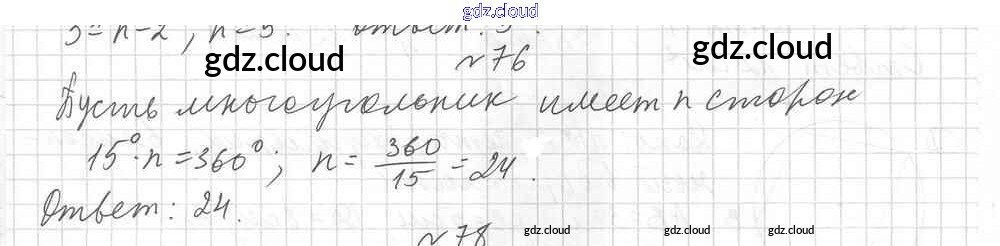 gdz.cloud
3 = n - 2 ; n = 5. Ответ: 5.
gdz.cloud gdz.cloud
№76
Пусть многоугольник имеет n сторон
15° · n = 360° ; n = 360/15 = 24.
gdz.cloud gdz.cloud
Ответ: 24.
№78
gdz.cloud gdz.cloud gdz.cloud